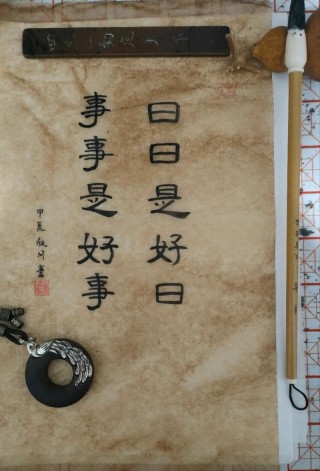 日日是好日
事事是好事
甲辰
書